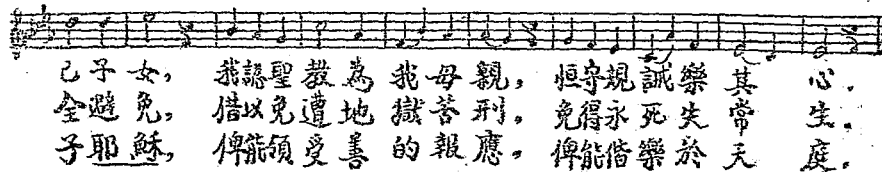 己子女，我認聖教為我母親，恒守規誡樂其心。
全避免，借以免遭地獄苦刑，免得永死失常生。
子耶穌，俾能領受善的報應，俾能偕樂於天庭。